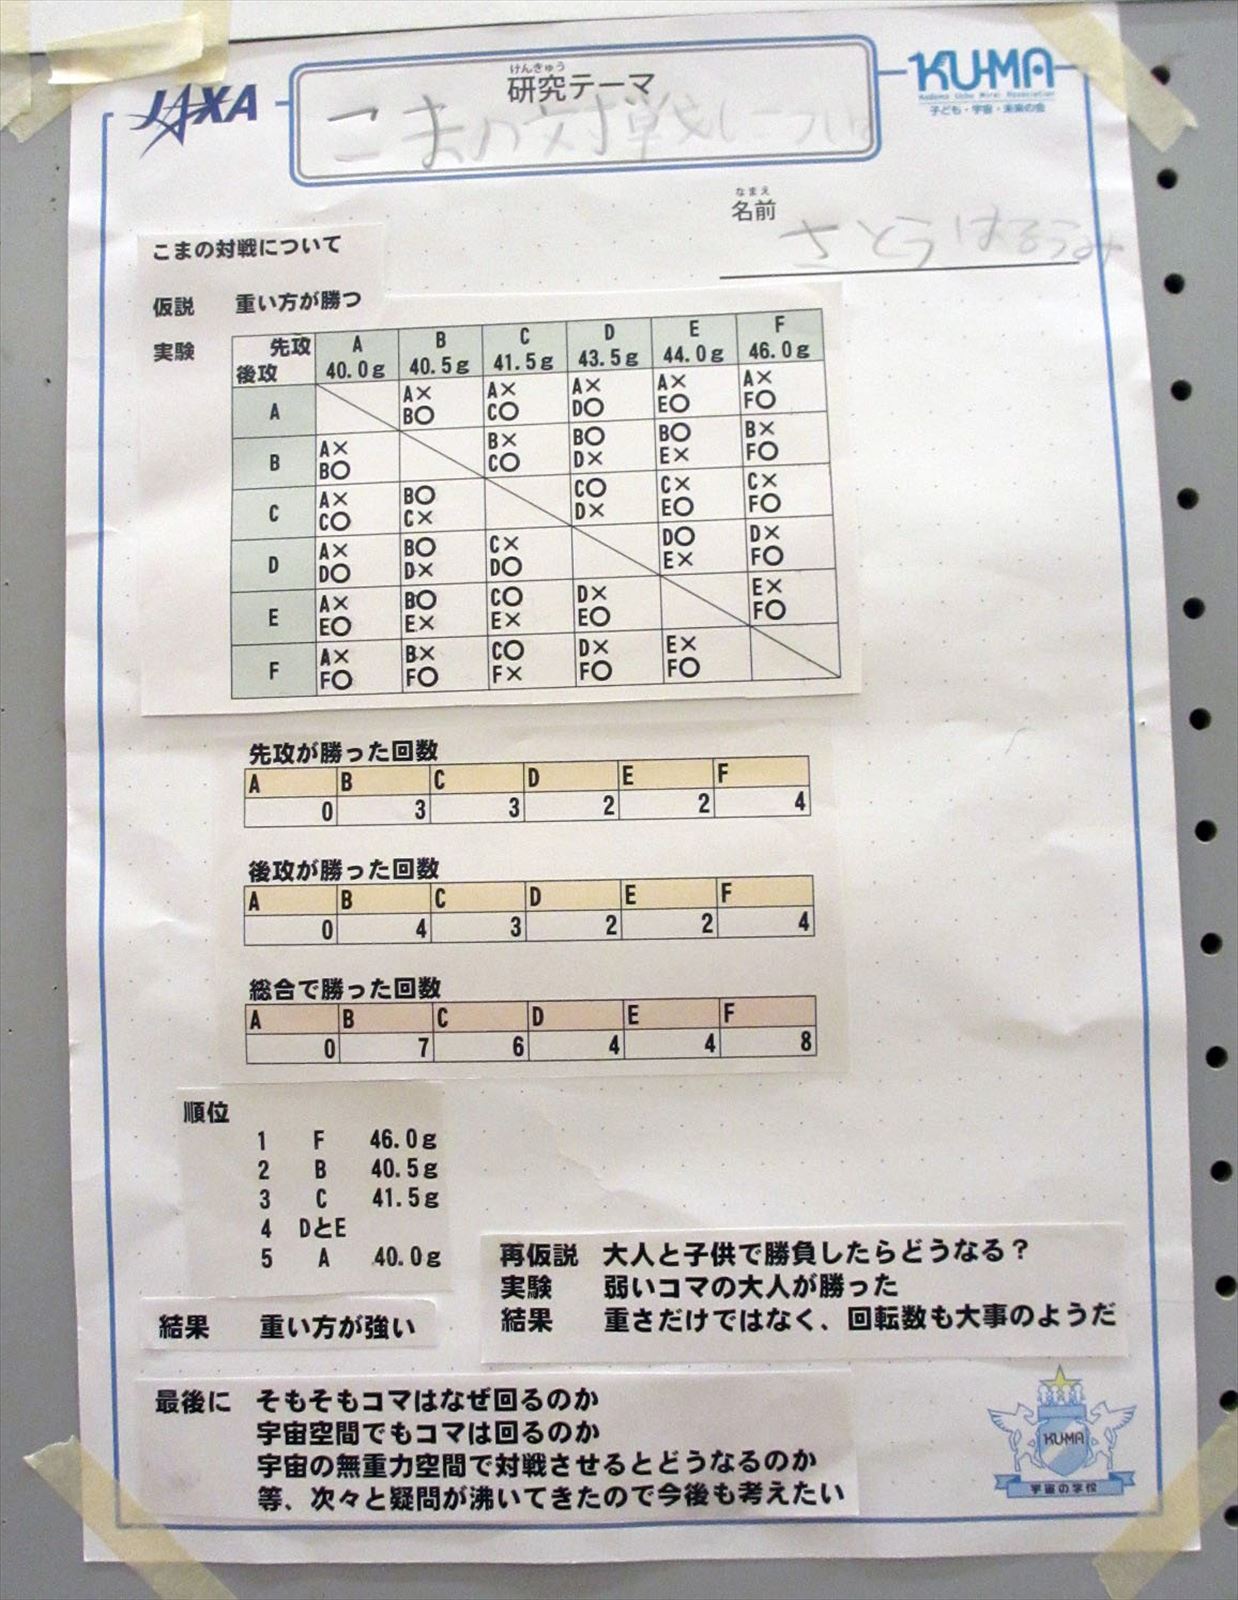 JAXA
けんきゅう
研究テーマ
こまの対戦について
KU-MA
Kodomo Uchu Mirai Association
子ども・宇宙・未来の会
なまえ
名前
さとう はる
こまの対戦について
仮説 重い方が勝つ
実験
先攻 後攻 A 40.0g B 40.5g C 41.5g D 43.5g E 44.0g F 46.0g
A A× B○ A× C○ A× D○ A× E○ A× F○
B A× B○ B× C○ B○ D× B○ E× B× F○
C A× C○ B○ C× C○ D× C× E○ C× F○
D A× D○ B○ D× C× D○ D○ E× D× F○
E A× E○ B○ E× C○ E× D× E○ E× F○
F A× F○ B× F○ C○ F× D× F○ E× F○
先攻が勝った回数
A B C D E F
0 3 3 2 2 4
後攻が勝った回数
A B C D E F
0 4 3 2 2 4
総合で勝った回数
A B C D E F
0 7 6 4 4 8
順位
1 F 46.0g
2 B 40.5g
3 C 41.5g
4 DとE
5 A 40.0g
結果 重い方が強い
再仮説 大人と子供で勝負したらどうなる？
実験 弱いコマの大人が勝った
結果 重さだけではなく、回転数も大事のようだ
最後に そもそもコマはなぜ回るのか
宇宙空間でもコマは回るのか
宇宙の無重力空間で対戦させるとどうなるのか
等、次々と疑問が沸いてきたので今後も考えたい
KU-MA
宇宙の学校